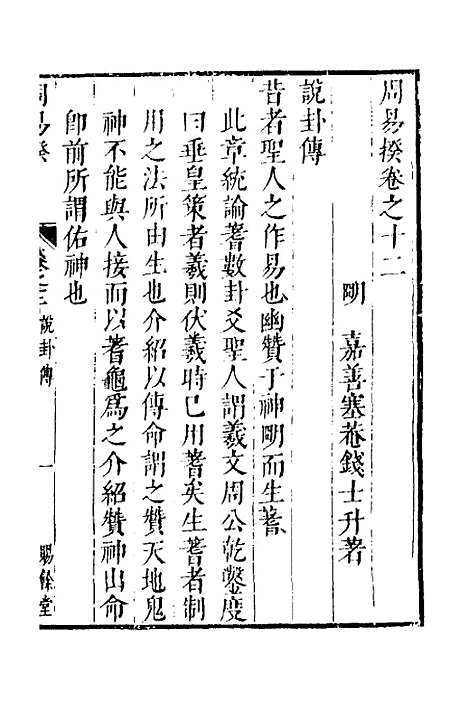 周易揆卷之十二
明　嘉善塞菴錢士升著
說卦傳
昔者聖人之作易也幽贊于神明而生蓍
此章統論蓍數卦爻聖人謂羲文周公乾鑿度
曰垂皇策者羲則伏羲時已用蓍矣生蓍者制
用之法所由生也介紹以傳命謂之贊天地鬼
神不能與人接而以蓍龜爲之介紹贊神出命
卽前所謂佑神也
周易揆　卷之十二　說卦傳　一　賜餘堂